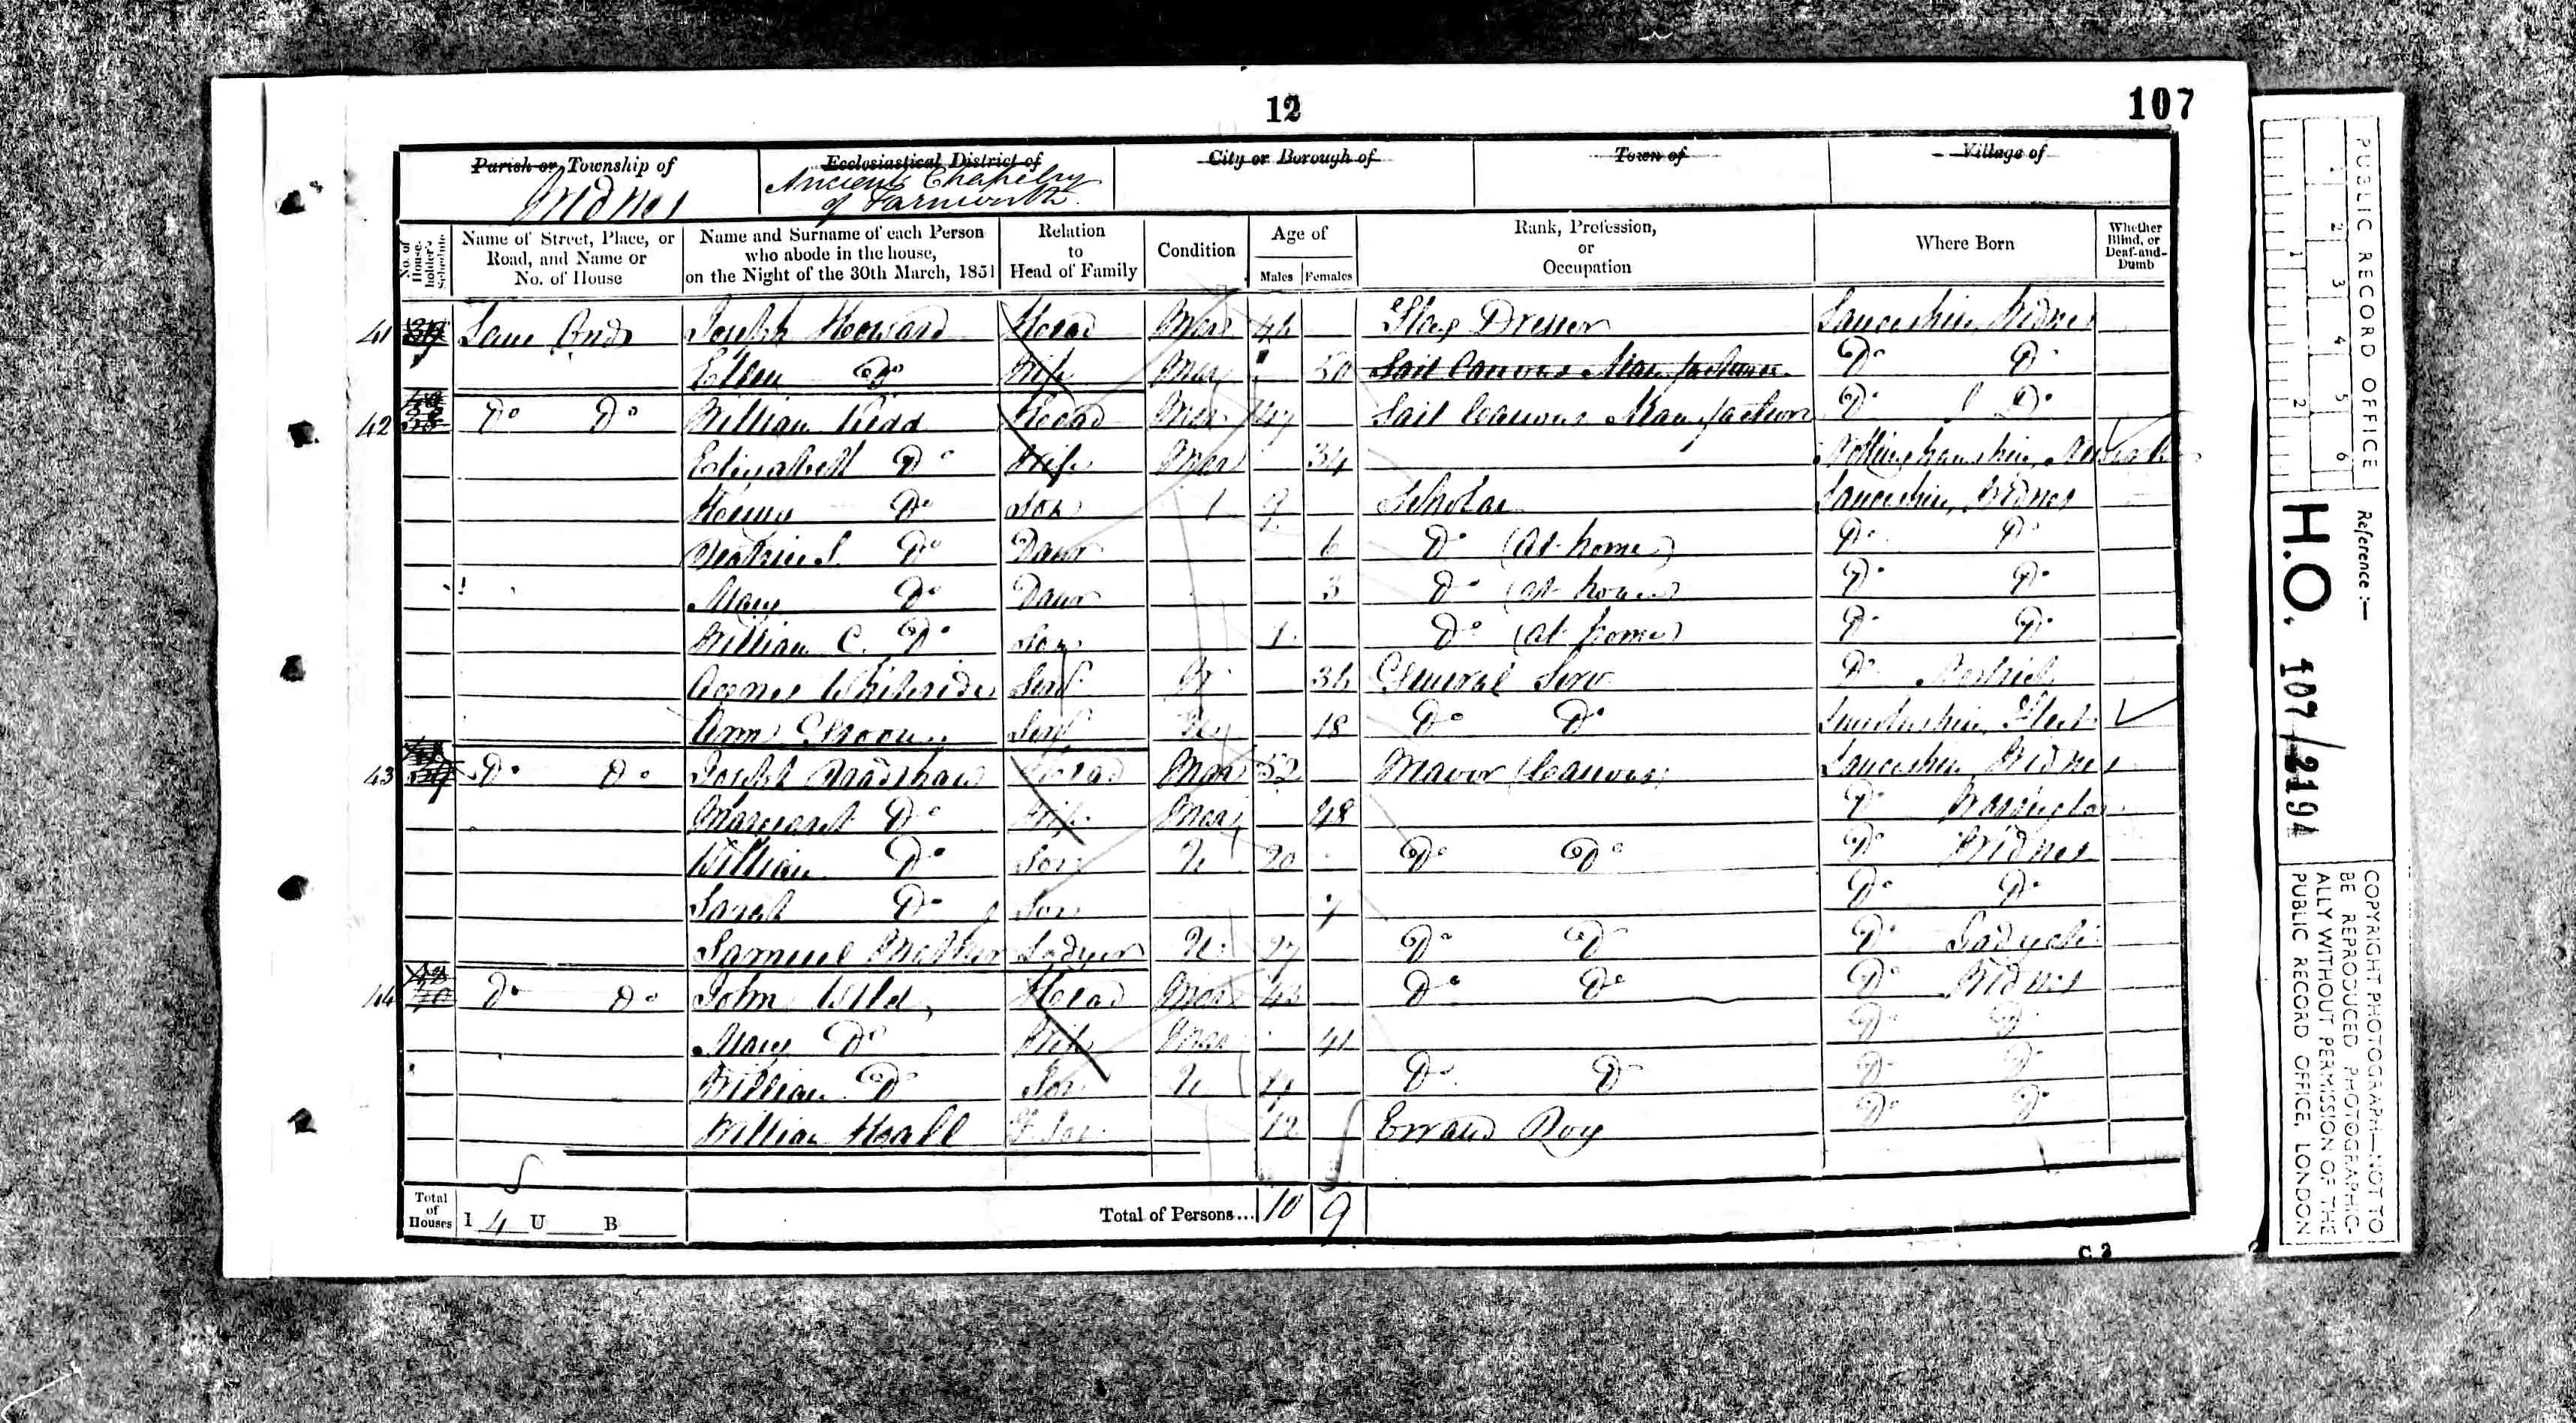 12
107
Parish or Township of
Widnes
Ecclesiastical District of
Ancient Chapelry
of Farnworth
City or Borough of
Town of
Village of
No. of House-holder's Schedule
Name of Street, Place, or Road, and Name or No. of House
Name and Surname of each Person who abode in the house, on the Night of the 30th March, 1851
Relation to Head of Family
Condition
Age of
Males Females
Rank, Profession, or Occupation
Where Born
Whether Blind, or Deaf-and-Dumb
41 Lane Ends Joseph Howard Head Mar 46 Flax Dresser Lancashire Widnes
Ellen Do Wife Mar 50 Sail Canvas Manufacturer Do Do
42 Do Do William Kidd Head Mar 47 Sail Canvas Manufacturer Do Do
Elizabeth Do Wife Mar 34 Nottinghamshire
Do Son 9 Scholar Lancashire Widnes
Do Daur 6 Do (at home) Do Do
Mary Do Daur 3 Do (at home) Do Do
William C. Do Son 1 Do (at home) Do Do
Agnes Whiteside Serv 36 General Serv Do
Ann Serv U 18 Do Do Fleet
43 Do Do Joseph Bradshaw Head Mar 52 Weavor (Canvas) Lancashire Widnes
Margaret Do Wife Mar 48 Do Warrington
William Do Son U 20 Do Do Do Widnes
Sarah Do Son 7 Do Do
Samuel Lodger U 27 Do Do Do
44 Do Do John Wild Head Mar 43 Do Do Do Widnes
Mary Do Wife Mar 41 Do Do
William Do Son U Do Do Do Do
William Heall 12 Errand Boy Do Do
Total of Houses I 4 U B
Total of Persons... 10 9
C 2
PUBLIC RECORD OFFICE
1 2 3 4 5 6
1 2
Reference:—
H.O. 107/2194
COPYRIGHT PHOTOGRAPH—NOT TO
BE REPRODUCED PHOTOGRAPHIC-
ALLY WITHOUT PERMISSION OF THE
PUBLIC RECORD OFFICE, LONDON